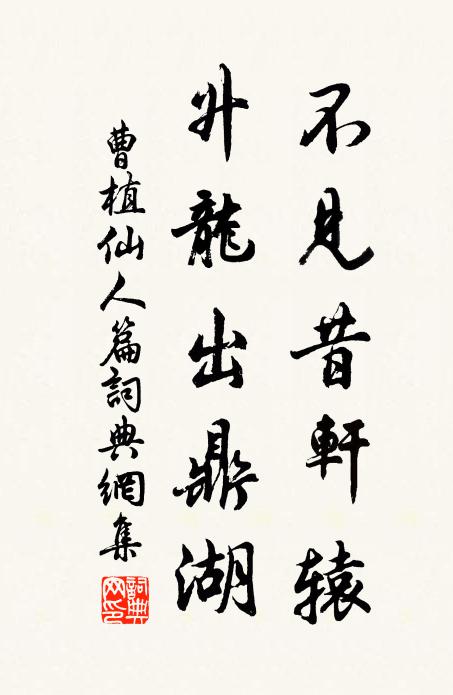 不見昔軒辕
升龍出鼎湖
曹植仙人篇詞典網集
詞典網印